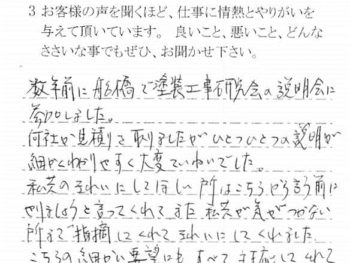 3 お客様の声を聞くほど、仕事に情熱とやりがいを
与えて頂いています。 良いこと、悪いこと、どんな
ささいな事でもぜひ、お聞かせ下さい。
数年前に船橋で塗装工事研究会の説明会に
参加しました。
何社か見積りを取りましたがひとつひとつの説明が
細かくわかりやすく大変ていねいでした。
私共のきれいにしてほしい所はこちらから言う前に
やりましょうと言ってくれて、また私共が気がつかない
所まで指摘してくれてきれいにしてくれました
こちらの細かい要望にもすべて対応してくれて